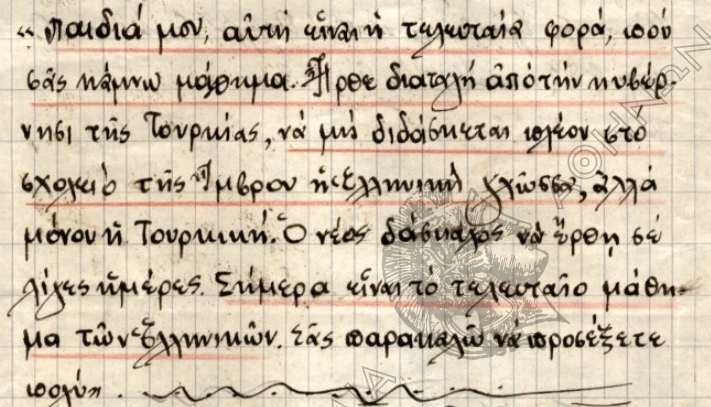 « Παιδιά μου, αὐτή εἶναι ἡ τελευταία φορά, πού
σᾶς κάμνω μάθημα. Ἦρθε διαταγή ἀπό τήν κυβέρ-
νησι τῆς Τουρκίας, νά μή διδάσκεται πλέον στό
σχολειό τῆς Ἴμβρου ἡ Ἑλληνική γλῶσσα, ἀλλά
μόνον ἡ Τουρκική. Ὁ νέος δάσκαλος νά ἔρθῃ σέ
λίγες ἡμέρες. Σήμερα εἶναι τό τελευταῖο μάθη-
μα τῶν Ἑλληνικῶν. Σᾶς παρακαλῶ νά προσέξετε
πολύ».